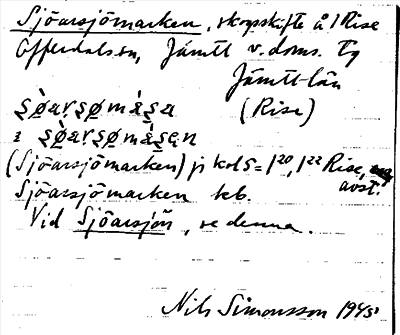 Sjöarsjömarken, skogsskifte å 1 Rise
Offerdals sn, Jämtl v. doms. tg
Jämtl-län
ʂø̀arʂømàʂa (Rise)
i ʂø̀arʂømàʂɛn
(Sjöarsjömarken) på kol 5 = 1²⁰, 1²² Rise,
avst.
Sjöarsjömarken kb.
Vid Sjöarsjön, se denna.
Nils Simonsson 1945